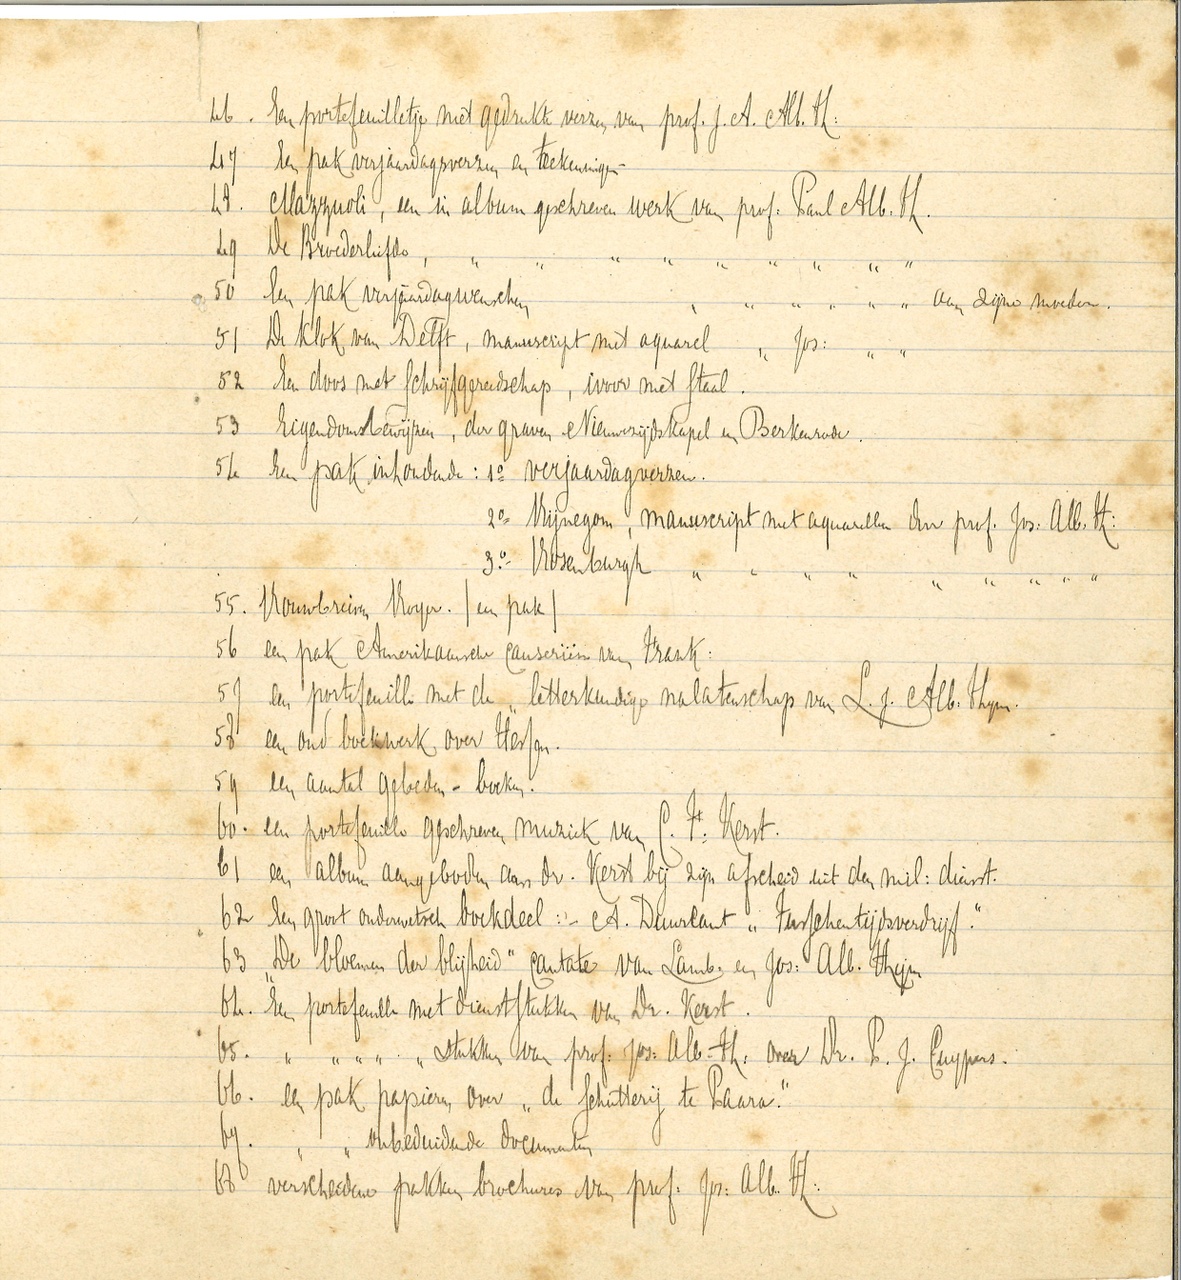 46. Een portefeuilletje met gedrukte verzen van prof. J. A. Alb. Th:
47 Een pak verjaardagsverzen en teekeningen
48. Mazzuoli, een in album geschreven werk van prof: Paul Alb. Th.
49 De Broederliefde, „ „ „ „ „ „ „ „ „
50 Een pak verjaardagwenschen „ „ „ „ „ „ aan zijne moeder.
51 De klok van Delft, manuscript met aquarel „ Jos: „ „
52 Een doos met schrijfgereedschap, ivoor met staal.
53 Eigendomsbewijzen, der graven Nieuwezijdskapel en Berkenrode.
54 Een pak inhoudende: 1º verjaardagverzen.
2º- , manuscript met aquarellen door prof. Jos: Alb. Th:
3º- Rosenburgh „ „ „ „ „ „ „ „ „
55. Rouwbrieven Royer. / een pak /
56 een pak Amerikaansche causeriën van Frank:
57 een portefeuille met de „ letterkundige nalatenschap van L. J. Alb: Thym.
58 een oud boekwerk over
59 een aantal gebeden - boeken.
60. een portefeuille geschreven muziek van C. F. Kerst.
61 een album aangeboden aan dr. Kerst bij zijn afscheid uit den mil: dienst.
62 Een groot ouderwetsch boekdeel :- A. „ Tusschentijdsverdrijf.“
63 „De bloemen der blijheid“ cantate van Lamb. en Jos: Alb. Thijm
64. Een portefeuille met dienststukken van Dr. Kerst.
65. „ „ „ „ „ „ stukken van prof: Jos: Alb-Th: over Dr. P. J. Cuypers.
66. een pak papieren over „ de schutterij te Baarn.“
67. „ „ onbeduidende documenten
68 verscheidene pakken brochures van prof: Jos: Alb. Th: